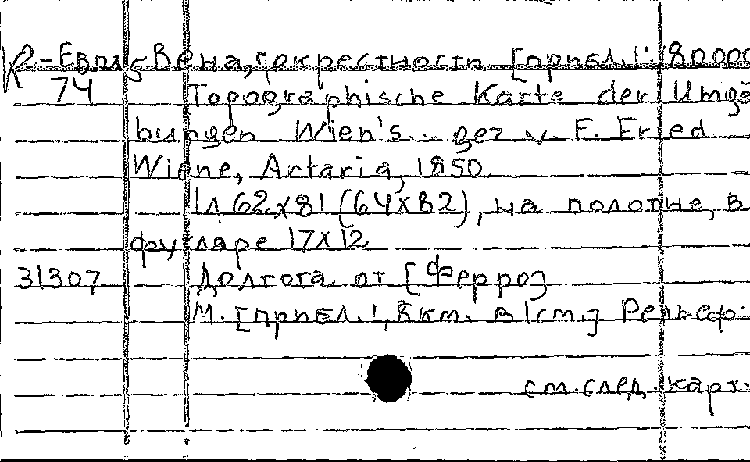 К2-Евр/15-Вена, окрестности [прибл. 1:80000
74 Topographische Karte der Umge
bungen Wien's.. gez v. F. Fried
Wiene, Artaria, 1850.
1л 62x81 (64x82), на полотне, в
футляре 17x12
31307 Долгота от [Ферро]
М. [прибл. 1,8km. в 1см.] Рельеф-
см. след. карт.